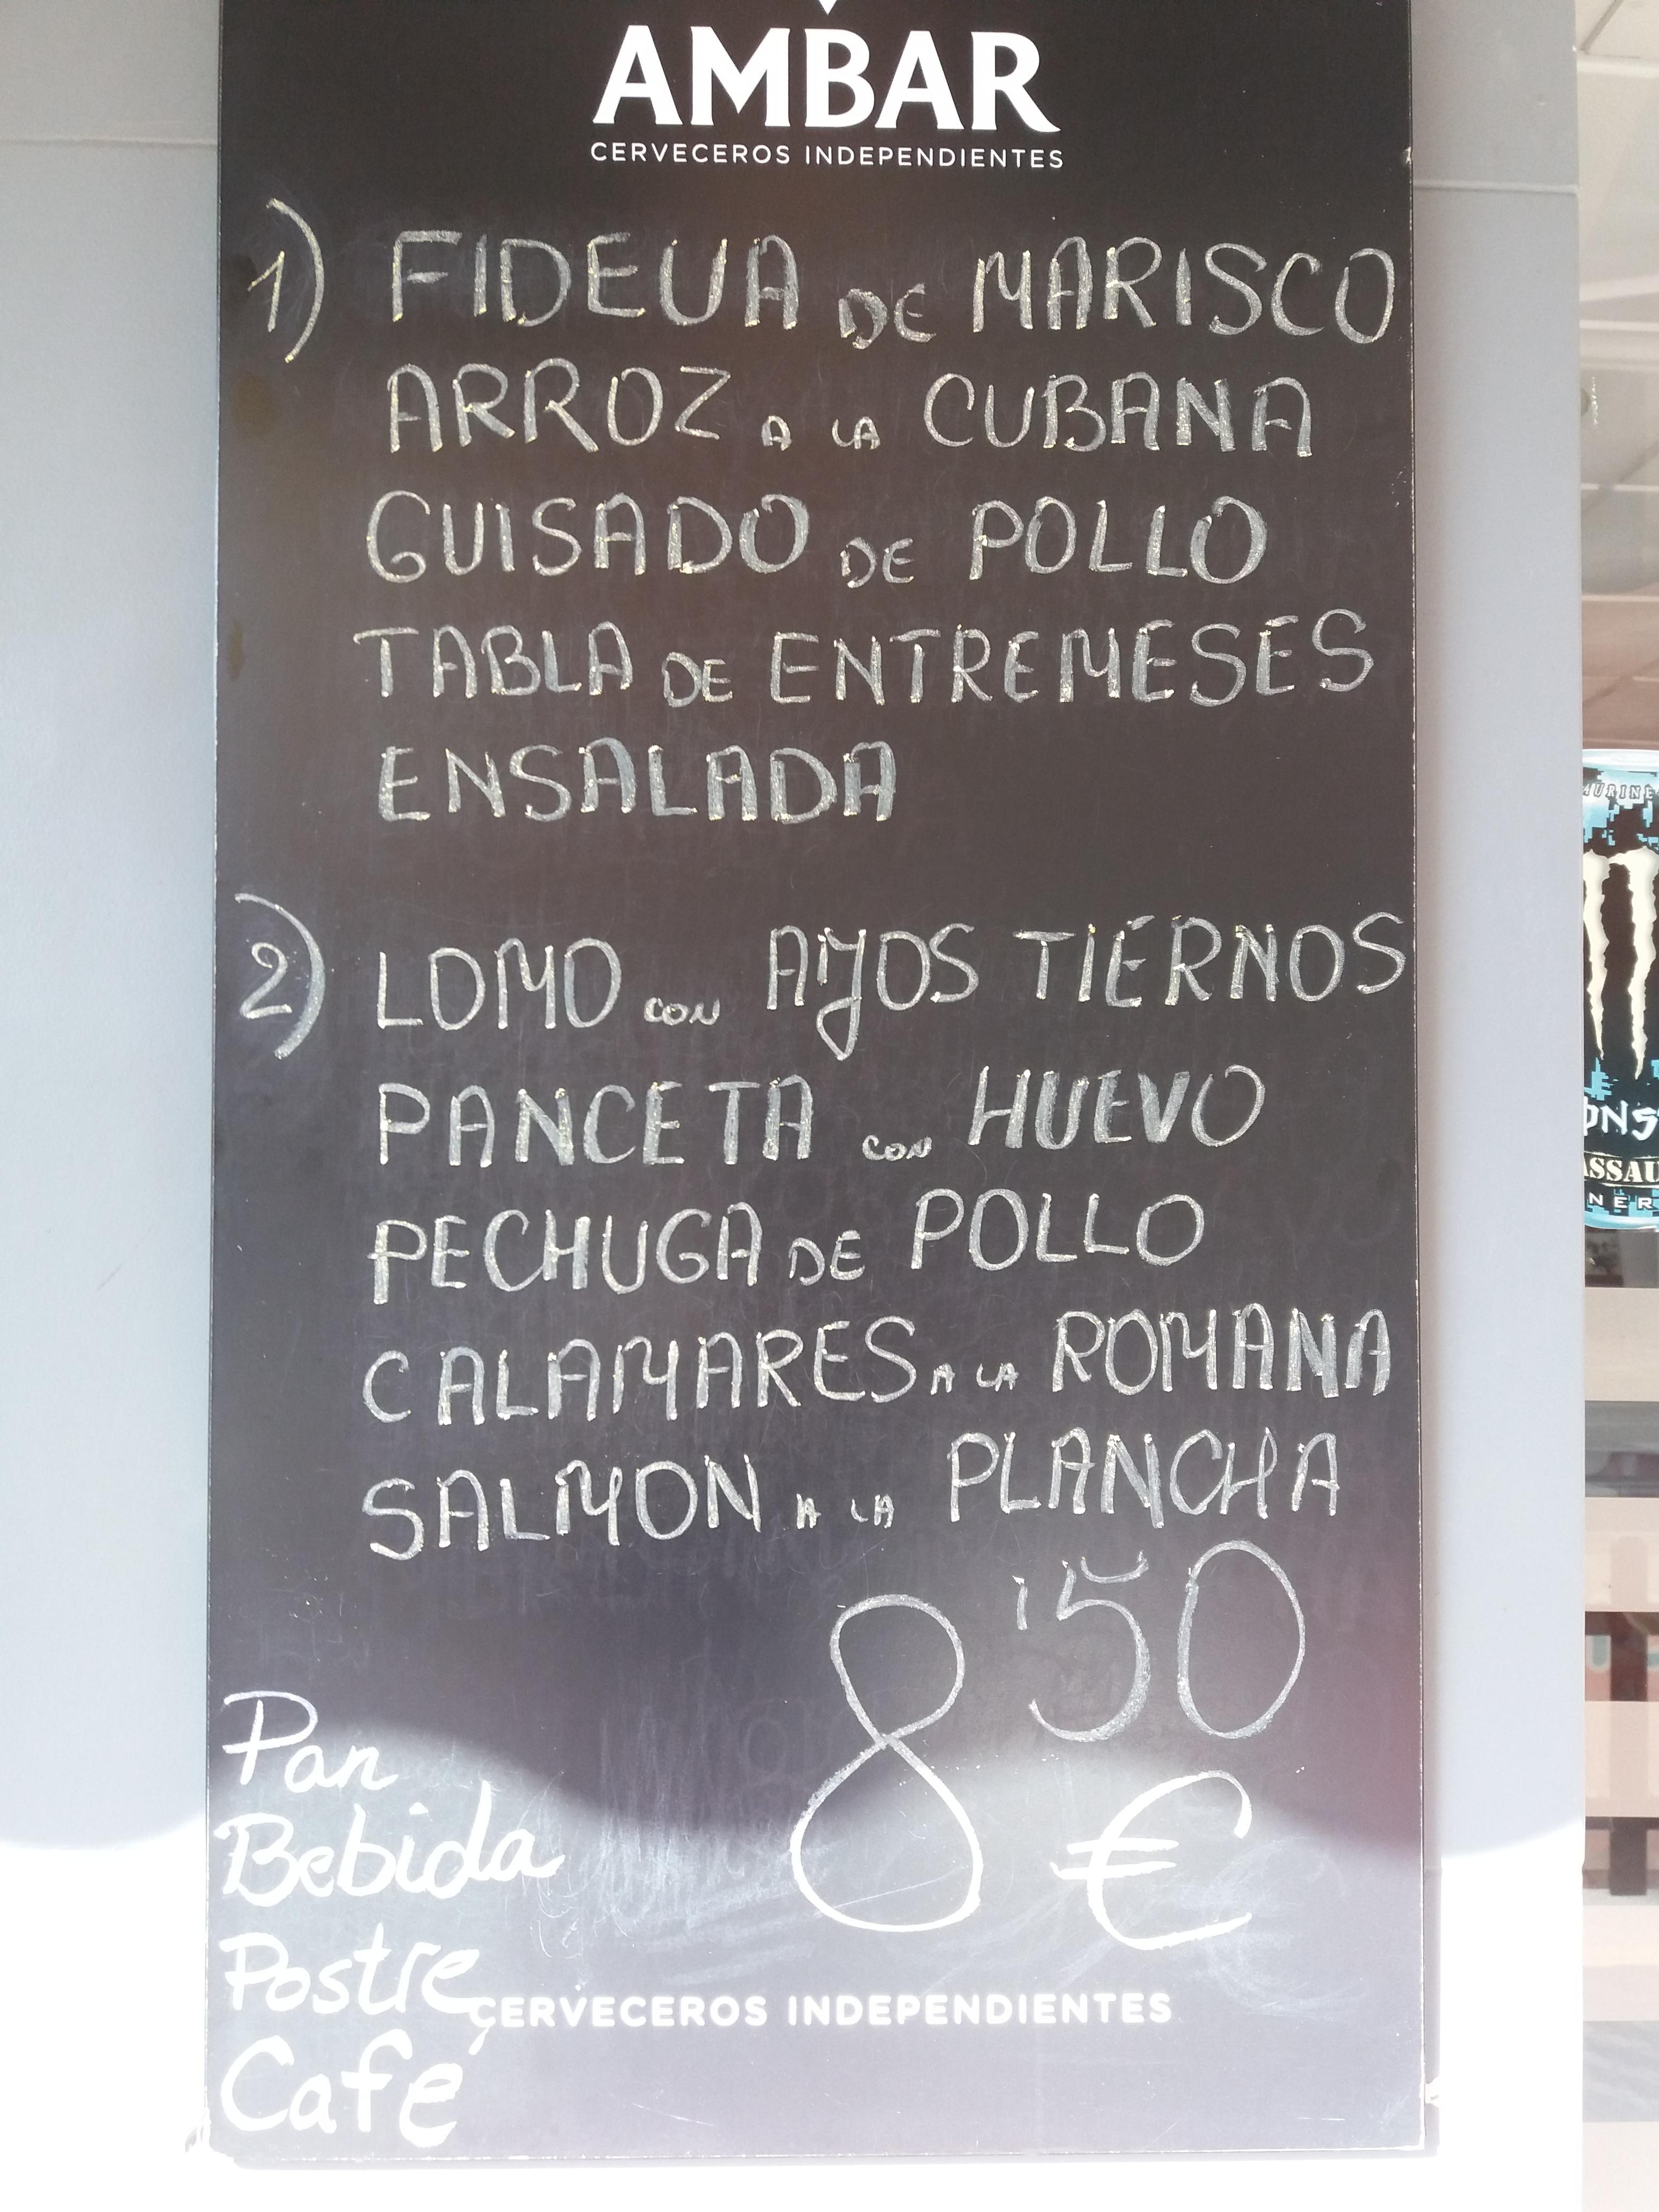 AMBAR
CERVECEROS INDEPENDIENTES
1) FIDEUA DE MARISCO
ARROZ A LA CUBANA
GUISADO DE POLLO
TABLA DE ENTREMESES
ENSALADA
2) LOMO CON AJOS TIERNOS
PANCETA CON HUEVO
PECHUGA DE POLLO
CALAMARES A LA ROMANA
SALMON A LA PLANCHA
8'50 €
Pan
Bebida
Postre
CERVECEROS INDEPENDIENTES
Café
AURINE
ONS
ASSAU
NER